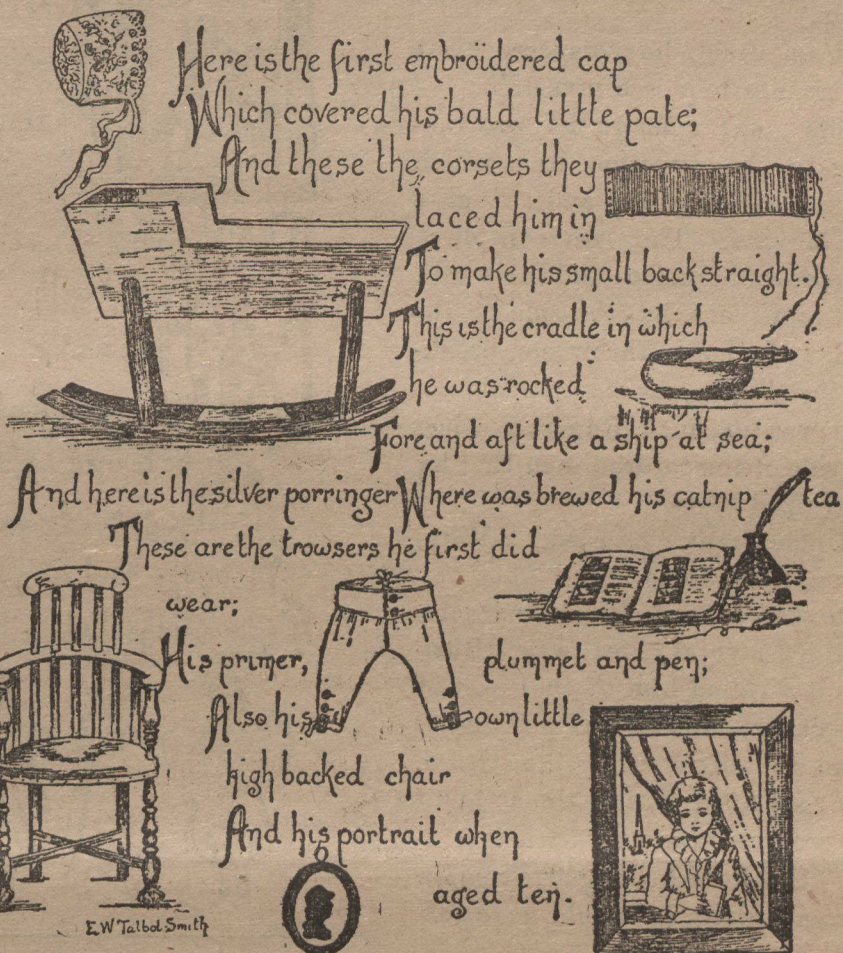 Here is the first embroidered cap
Which covered his bald little pate;
And these the corsets they
laced him in
To make his small back straight.
This is the cradle in which
he was rocked
Fore and aft like a ship at sea;
And here is the silver porringer Where was brewed his catnip tea
These are the trowsers he first did
wear;
His primer, plummet and pen;
Also his own little
high backed chair
And his portrait when
aged ten.
E W Talbot Smith